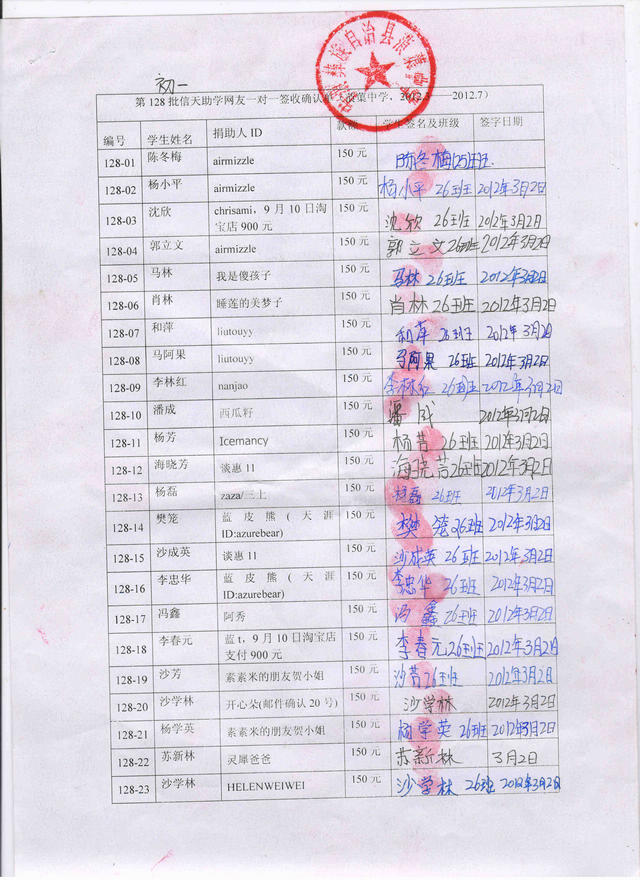 彝族自治县
初一
第128批信天助学网友一对一签收确认
中学，2012.7）
编号 学生姓名 捐助人ID 款额 学生签名及班级 签字日期
128-01 陈冬梅 airmizzle 150元 陈冬梅(25)班班
128-02 杨小平 airmizzle 150元 杨小平 26班班 2012年3月2日
128-03 沈欣 chrisami，9月10日淘宝店900元 150元 沈欣 26班班 2012年3月2日
128-04 郭立文 airmizzle 150元 郭立文26班班 2012年3月2日
128-05 马林 我是傻孩子 150元 马林 26班班 2012年3月2日
128-06 肖林 睡莲的美梦子 150元 肖林 26班班 2012年3月2日
128-07 和萍 liutouyy 150元 和萍 26班班 2012年3月2日
128-08 马阿果 liutouyy 150元 马阿果 26班 2012年3月2日
128-09 李林红 nanjao 150元 李林红 26班班 2012年3月2日
128-10 潘成 西瓜籽 150元 潘成 2012年3月2日
128-11 杨芳 Icemancy 150元 杨芳 26班 2012年3月2日
128-12 海晓芳 谈惠11 150元 海晓芳 26班班 2012年3月2日
128-13 杨磊 zaza/三上 150元 杨磊 26班 2012年3月2日
128-14 樊笼 蓝皮熊(天涯ID:azurebear) 150元 樊笼 26班 2012年3月2日
128-15 沙成英 谈惠11 150元 沙成英 26班 2012年3月2日
128-16 李忠华 蓝皮熊(天涯ID:azurebear) 150元 李忠华 26班 2012年3月2日
128-17 冯鑫 阿秀 150元 冯鑫 26班 2012年3月2日
128-18 李春元 蓝t，9月10日淘宝店支付900元 150元 李春元 26班班 2012年3月2日
128-19 沙芳 素素米的朋友贺小姐 150元 沙芳 26班 2012年3月2日
128-20 沙学林 开心朵(邮件确认20号) 150元 沙学林 2012年3月2日
128-21 杨学英 素素米的朋友贺小姐 150元 杨学英 26班 2012年3月2日
128-22 苏新林 灵犀爸爸 150元 苏新林 3月2日
128-23 沙学林 HELENWEIWEI 150元 沙学林 26班 2012年3月2日